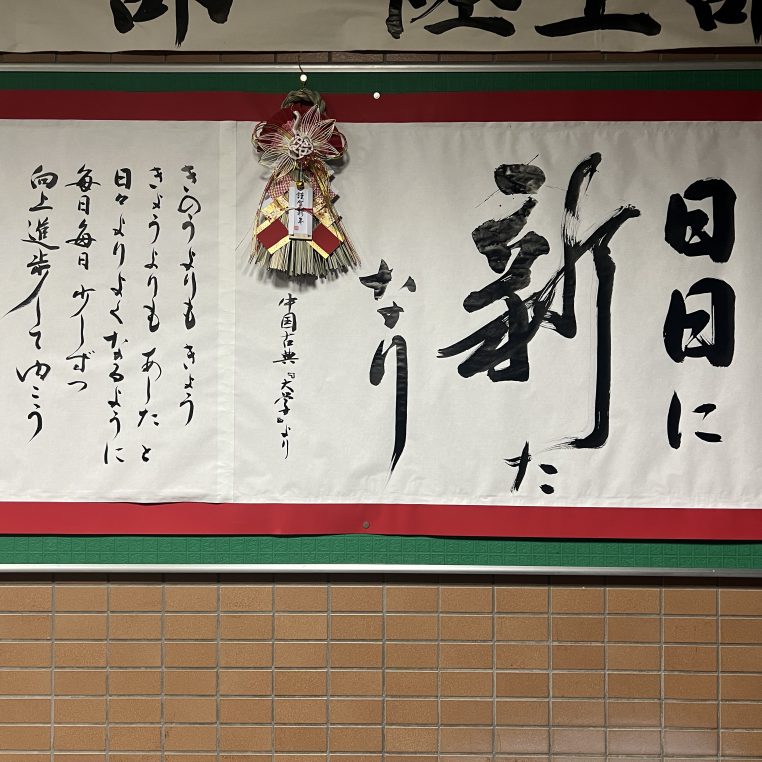 日日に
新た
なり
中国古典『大学』より
謹賀新年
きのうよりも きょう
きょうよりも あしたと
日々よりよくなるように
毎日毎日 少しずつ
向上進歩してゆこう